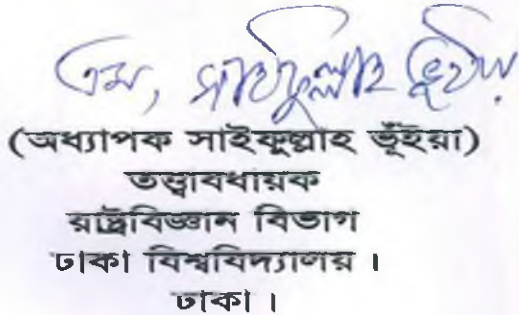 এম, সাইফুল্লাহ ভূঁইয়া
(অধ্যাপক সাইফুল্লাহ ভূঁইয়া)
তত্ত্বাবধায়ক
রাষ্ট্রবিজ্ঞান বিভাগ
ঢাকা বিশ্ববিদ্যালয় ।
ঢাকা ।